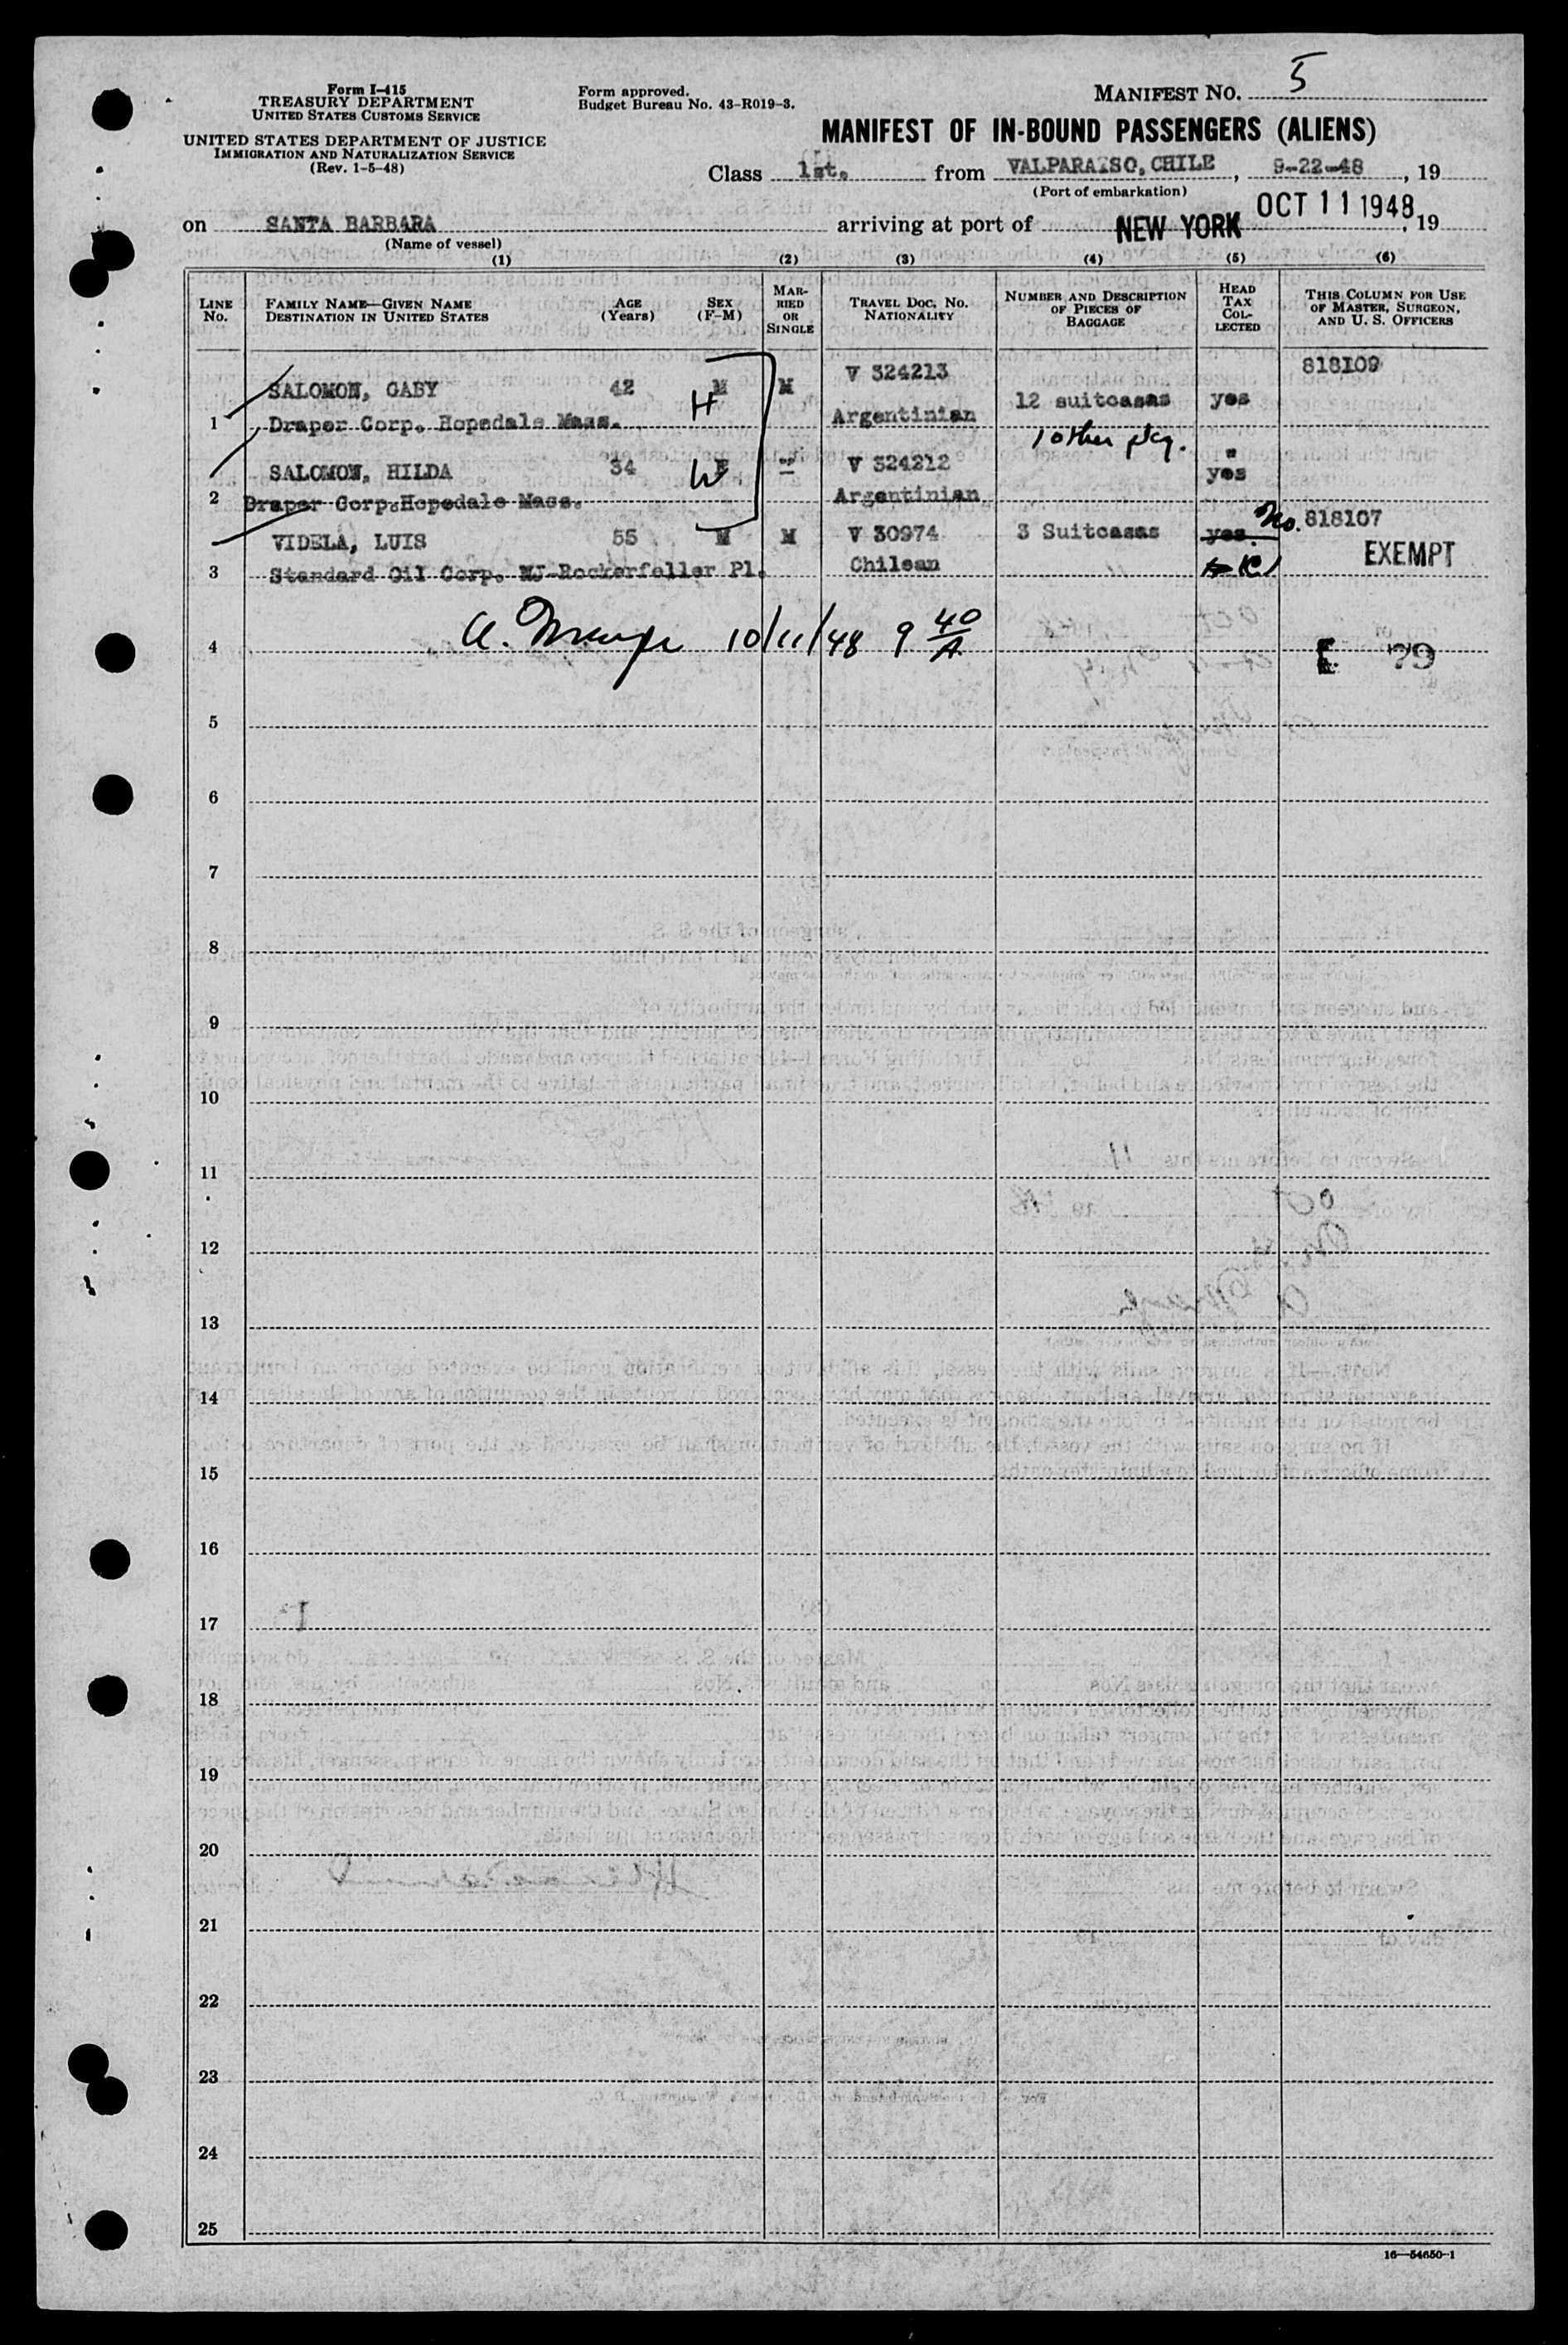 Form I-415
TREASURY DEPARTMENT
UNITED STATES CUSTOMS SERVICE
UNITED STATES DEPARTMENT OF JUSTICE
IMMIGRATION AND NATURALIZATION SERVICE
(Rev. 1-5-48)
Form approved.
Budget Bureau No. 43-R019-3.
MANIFEST NO. 5
MANIFEST OF IN-BOUND PASSENGERS (ALIENS)
Class 1st. from VALPARAISO, CHILE, 9-22-48, 19
(Port of embarkation)
on SANTA BARBARA arriving at port of NEW YORK OCT 11 1948, 19
(Name of vessel)
(1) (2) (3) (4) (5) (6)
LINE No. FAMILY NAME—GIVEN NAME DESTINATION IN UNITED STATES AGE (Years) SEX (F-M) MARRIED OR SINGLE TRAVEL DOC. NO. NATIONALITY NUMBER AND DESCRIPTION OF PIECES OF BAGGAGE HEAD TAX COLLECTED THIS COLUMN FOR USE OF MASTER, SURGEON, AND U. S. OFFICERS
V 324213 818109
SALOMON, GABY 42 M H M 12 suitcasas yes
1 Draper Corp. Hopedale Mass. Argentinian
1 other pkg.
SALOMON, HILDA 34 F W " V 324212 " yes
2 Draper Corp.Hopedale Mass. Argentinian
VIDELA, LUIS 55 M M V 30974 3 Suitcasas yes. No. 818107
EXEMPT
3 Standard Oil Corp. NJ-Rockerfeller Pl. Chilean
4 10/11/48 9 40/A E 79
5
6
7
8
9
10
11
12
13
14
15
16
17
18
19
20
21
22
23
24
25
16—54650-1